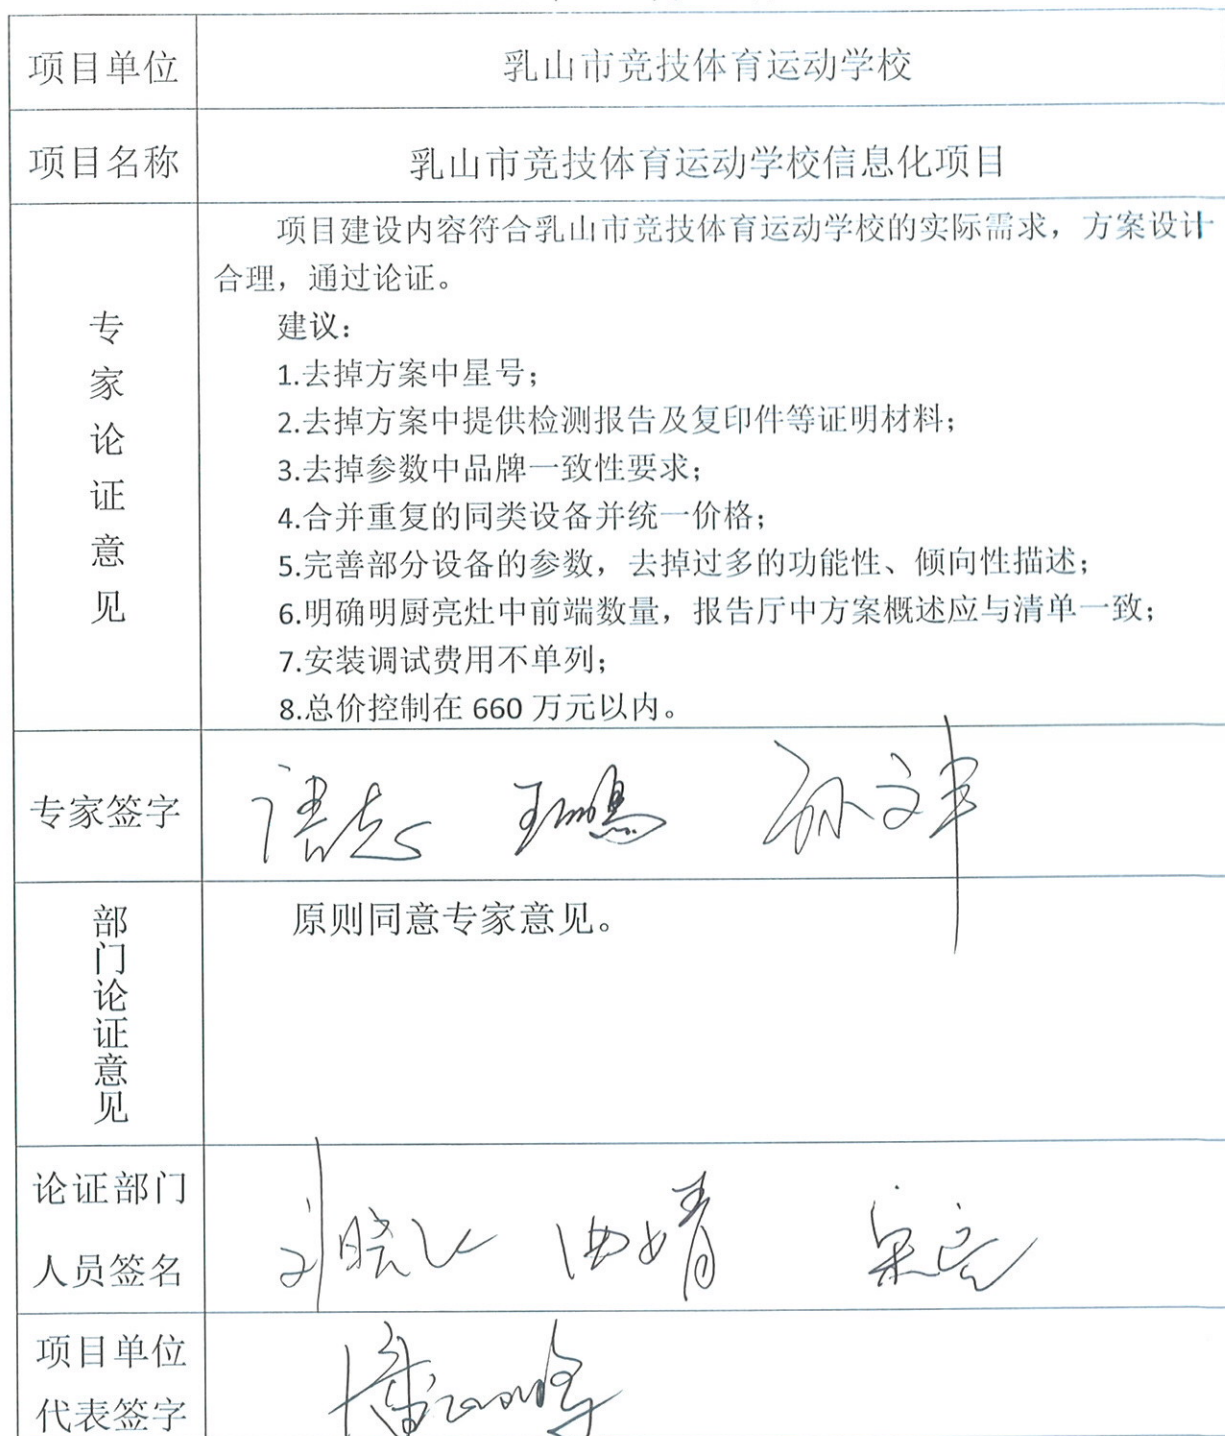 项目单位
乳山市竞技体育运动学校
项目名称
乳山市竞技体育运动学校信息化项目
专家论证意见
项目建设内容符合乳山市竞技体育运动学校的实际需求，方案设计
合理，通过论证。
建议：
1.去掉方案中星号；
2.去掉方案中提供检测报告及复印件等证明材料；
3.去掉参数中品牌一致性要求；
4.合并重复的同类设备并统一价格；
5.完善部分设备的参数，去掉过多的功能性、倾向性描述；
6.明确明厨亮灶中前端数量，报告厅中方案概述应与清单一致；
7.安装调试费用不单列；
8.总价控制在 660 万元以内。
专家签字
部门论证意见
原则同意专家意见。
论证部门
人员签名
项目单位
代表签字